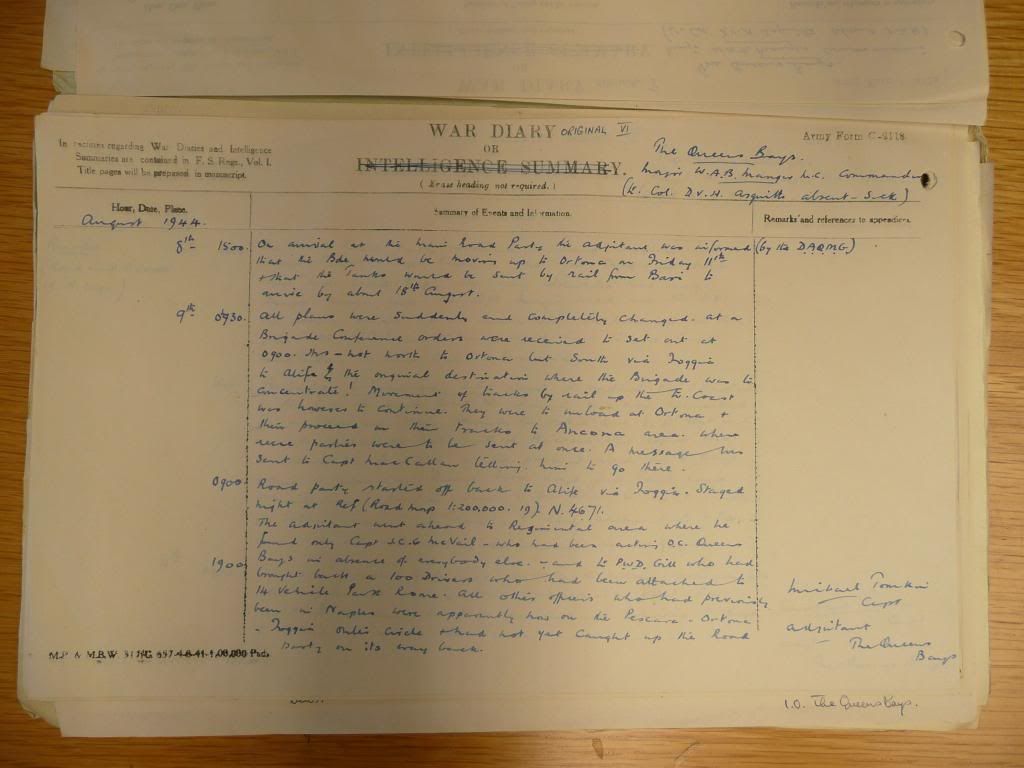 WAR DIARY ORIGINAL VI
OR
INTELLIGENCE SUMMARY.
(Erase heading not required.)
Army Form C-2118.
Instructions regarding War Diaries and Intelligence
Summaries are contained in F. S. Regs., Vol. I.
Title pages will be prepared in manuscript.
The Queens Bays.
Major W.A.B. Manger M.C. Commanding
(Lt. Col. D.V.H. Asquith absent - Sick)
Hour, Date, Place.
Summary of Events and Information.
Remarks and references to appendices
August 1944.
8th 1500. On arrival at the main Road Party the adjutant was informed (by the DAQMG)
that the Bde would be moving up to Ortona on Friday 11th
+ that the Tanks would be sent by rail from Bari to
arrive by about 18th August.
9th 0730. All plans were suddenly and completely changed. At a
Brigade Conference orders were received to set out at
0900. Hrs - not north to Ortona but South via Foggia
to Alife the original destination where the Brigade was to
concentrate! Movement of tracks by rail up the E. Coast
was however to continue. They were to unload at Ortona +
then proceed on their tracks to Ancona area. where
recce parties were to be sent at once. A message was
sent to Capt MacCallan telling him to go there.
0900 Road party started off back to Alife via Foggia. Staged
night at Ref (Road map 1:200,000. 19) N.4671.
The adjutant went ahead to Regimental area where he
found only Capt J.C.G McVail - who had been acting O.C. Queens
1900 Bays in absence of everybody else. - and Lt P.W.D. Gill who had
brought back a 100 Drivers who had been attached to
14 Vehicle Park Rome. All other officers who had previously
been in Naples were apparently now on the Pescara - Ortona
- Foggia outer circle + had not yet caught up the Road
Party on its way back.
Michael Tomkin
Capt
Adjutant
The Queens
Bays
1.0. The Queens Bays.